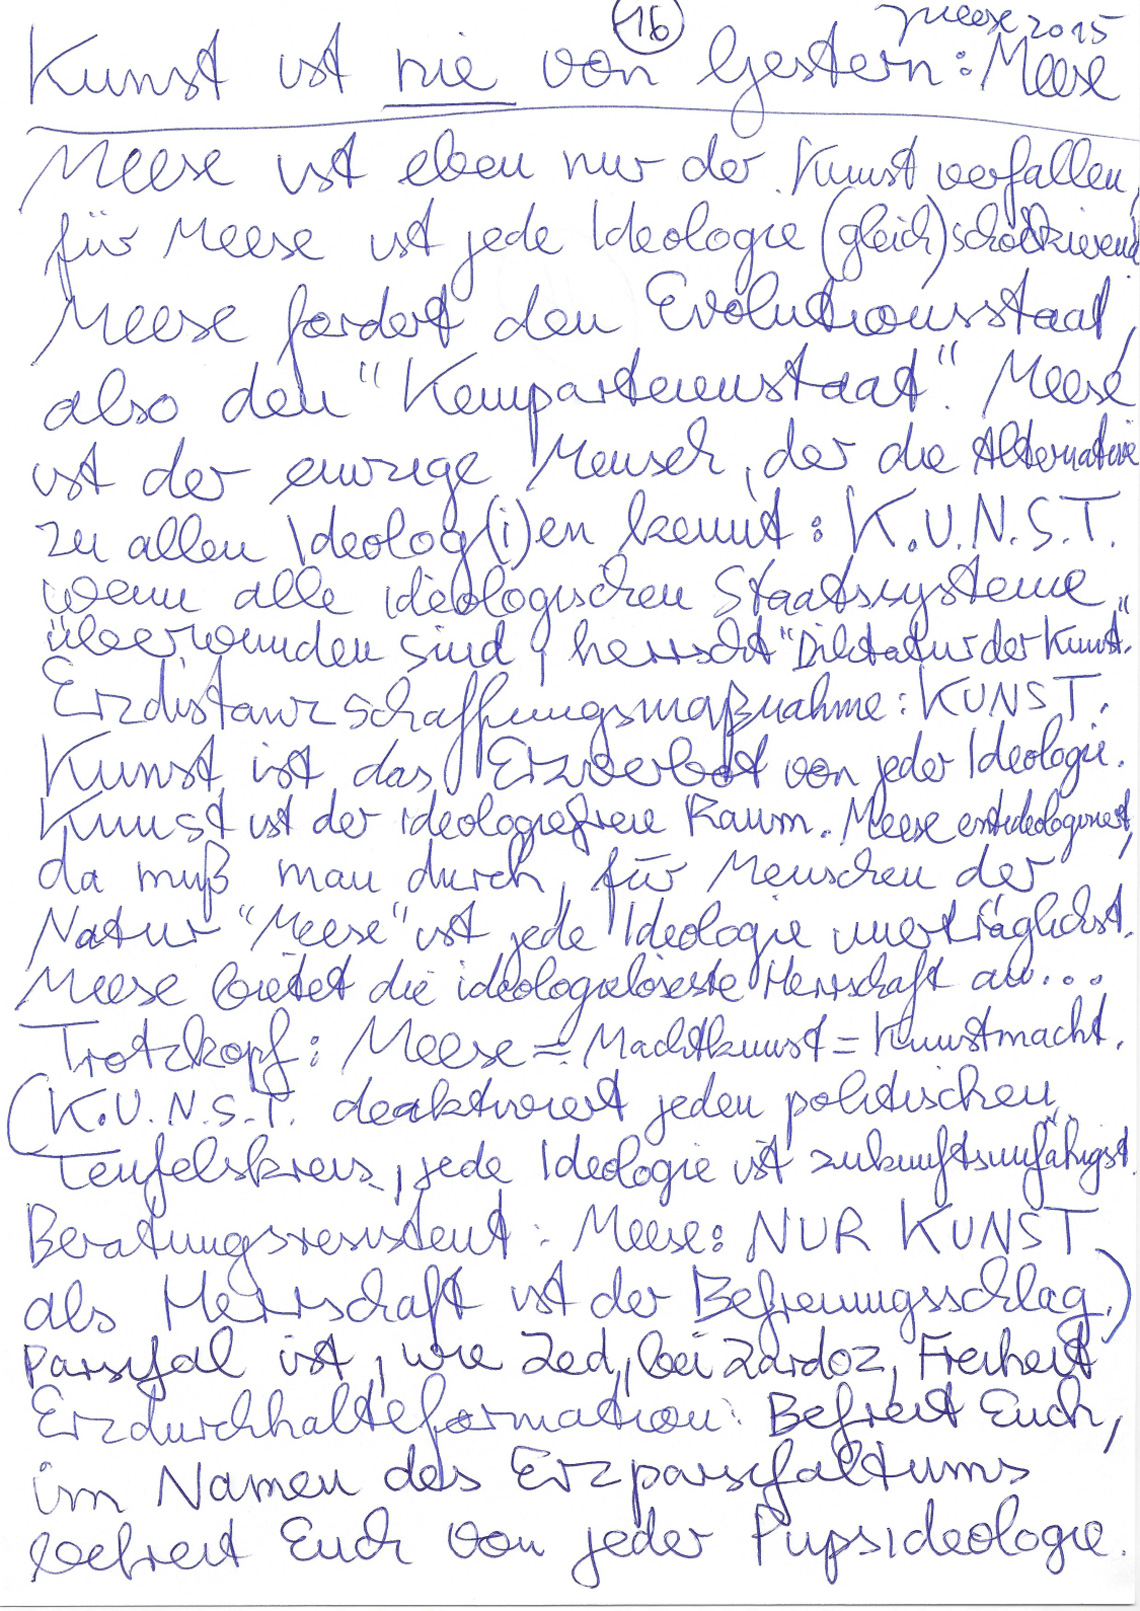 16
JMeese 2015
Kunst ist nie von Gestern: Meese
Meese ist eben nur der Kunst verfallen,
für Meese ist jede Ideologie (gleich)schockierend.
Meese fordert den Evolutionsstaat,
also den "Kempartenenstaat". Meese
ist der einzige Mensch, der die Alternative
zu allen Ideolog(i)en kennt: K.U.N.S.T.
wenn alle ideologischen Staatssysteme
überwunden sind, herrscht "Diktatur der Kunst".
Erzdistanzschaffungsmaßnahme: KUNST.
Kunst ist das Erzverbot von jeder Ideologie.
Kunst ist der ideologiefreie Raum. Meese entideologisiert,
da muß man durch, für Menschen der
Natur "Meese" ist jede Ideologie unerträglichst.
Meese bietet die ideologieloseste Herrschaft an...
Trotzkopf: Meese = Machtkunst = Kunstmacht.
(K.U.N.S.T. deaktiviert jeden politischen
Teufelskreis, jede Ideologie ist zukunftsunfähigst.
Beratungsresistent: Meese: NUR KUNST
als Herrschaft ist der Befreiungsschlag.)
Parsifal ist, wie Zed, bei Zardoz, Freiheit
Erzdurchhalteformation: Befreit Euch,
im Namen des Erzparsifaltums
befreit Euch von jeder Pupsideologie.